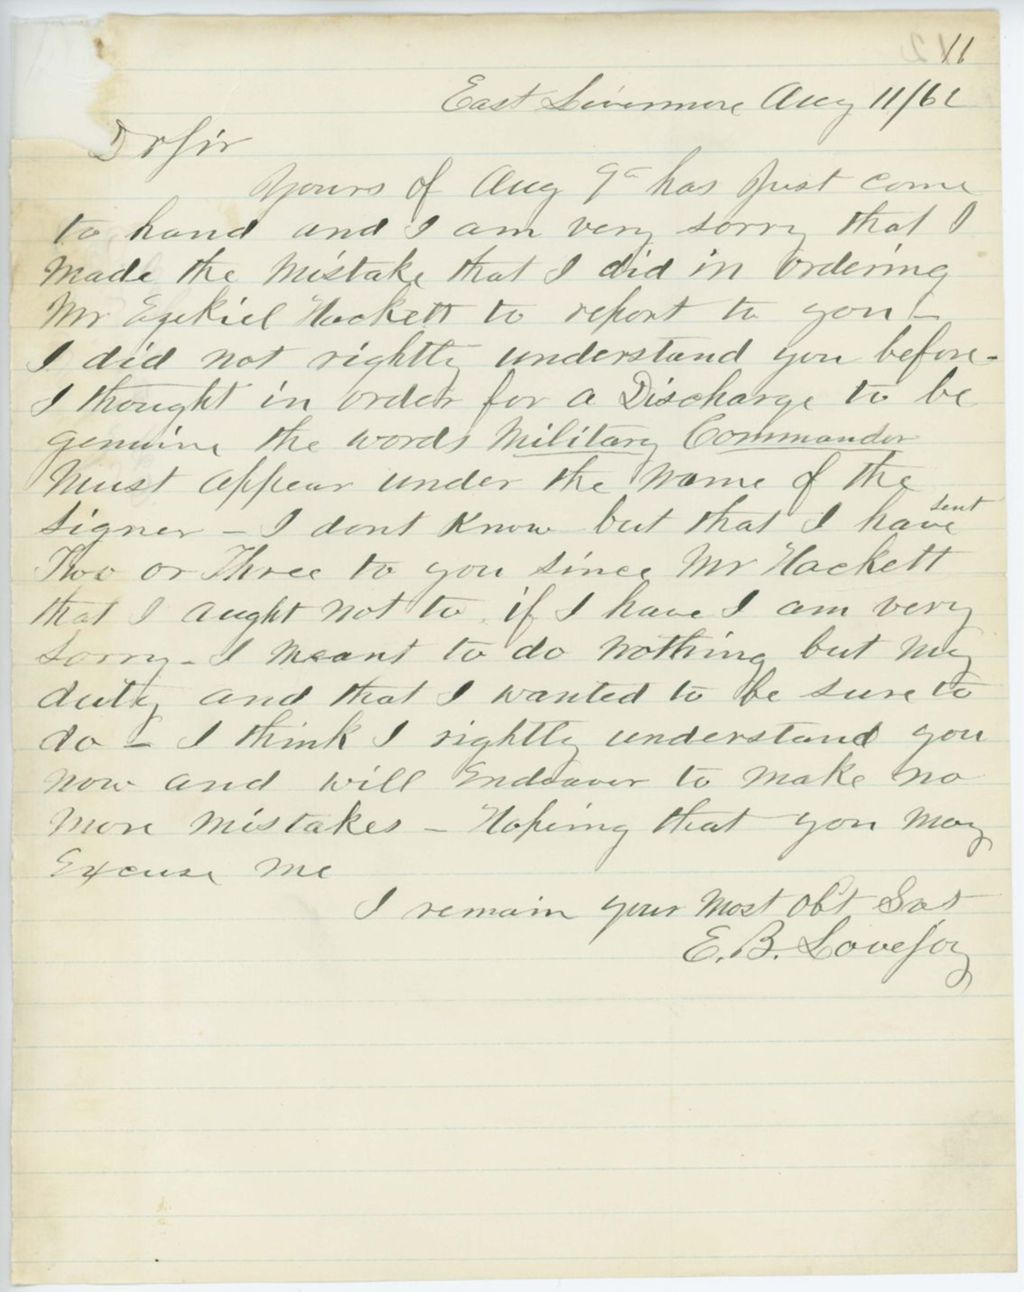 11
East Livermore Aug 11/62
Dr Sir
Yours of Aug 9th has Just come
to hand and I am very sorry that I
made the Mistake that I did in ordering
Mr Ezekiel Hackett to report to you -
I did not rightly understand you before -
I thought in order for a Discharge to be
genuine the words Military Commander
Must appear under the Name of the
Signer - I dont Know but that I have sent
Two or Three to you since Mr Hackett
that I aught Not to. if I have I am very
Sorry - I Meant to do nothing but My
duty and that I wanted to be sure to
do - I think I rightly understand you
now and will Endeavor to Make no
More Mistakes - Hoping that you May
Excuse Me
I remain your Most Obt Svt
E. B. Lovejoy